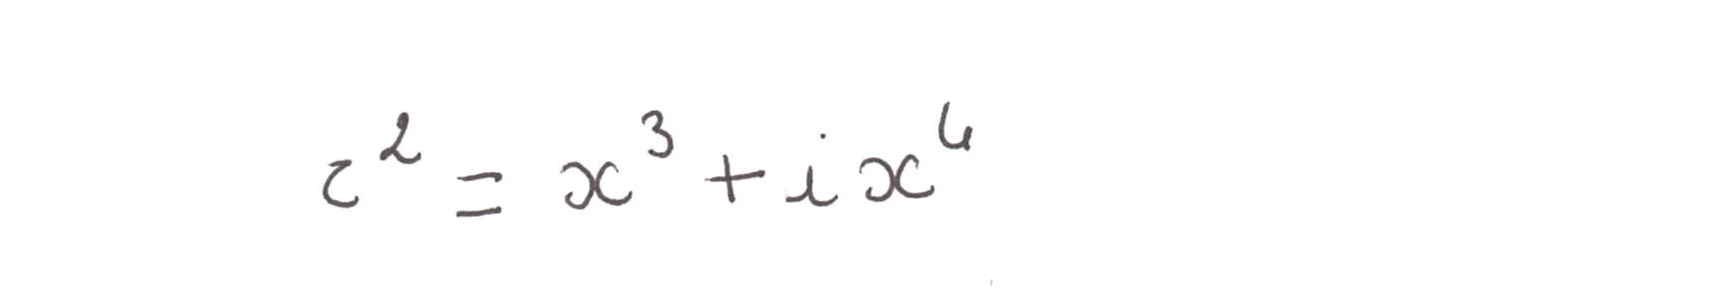 z² = x³ + ix⁴